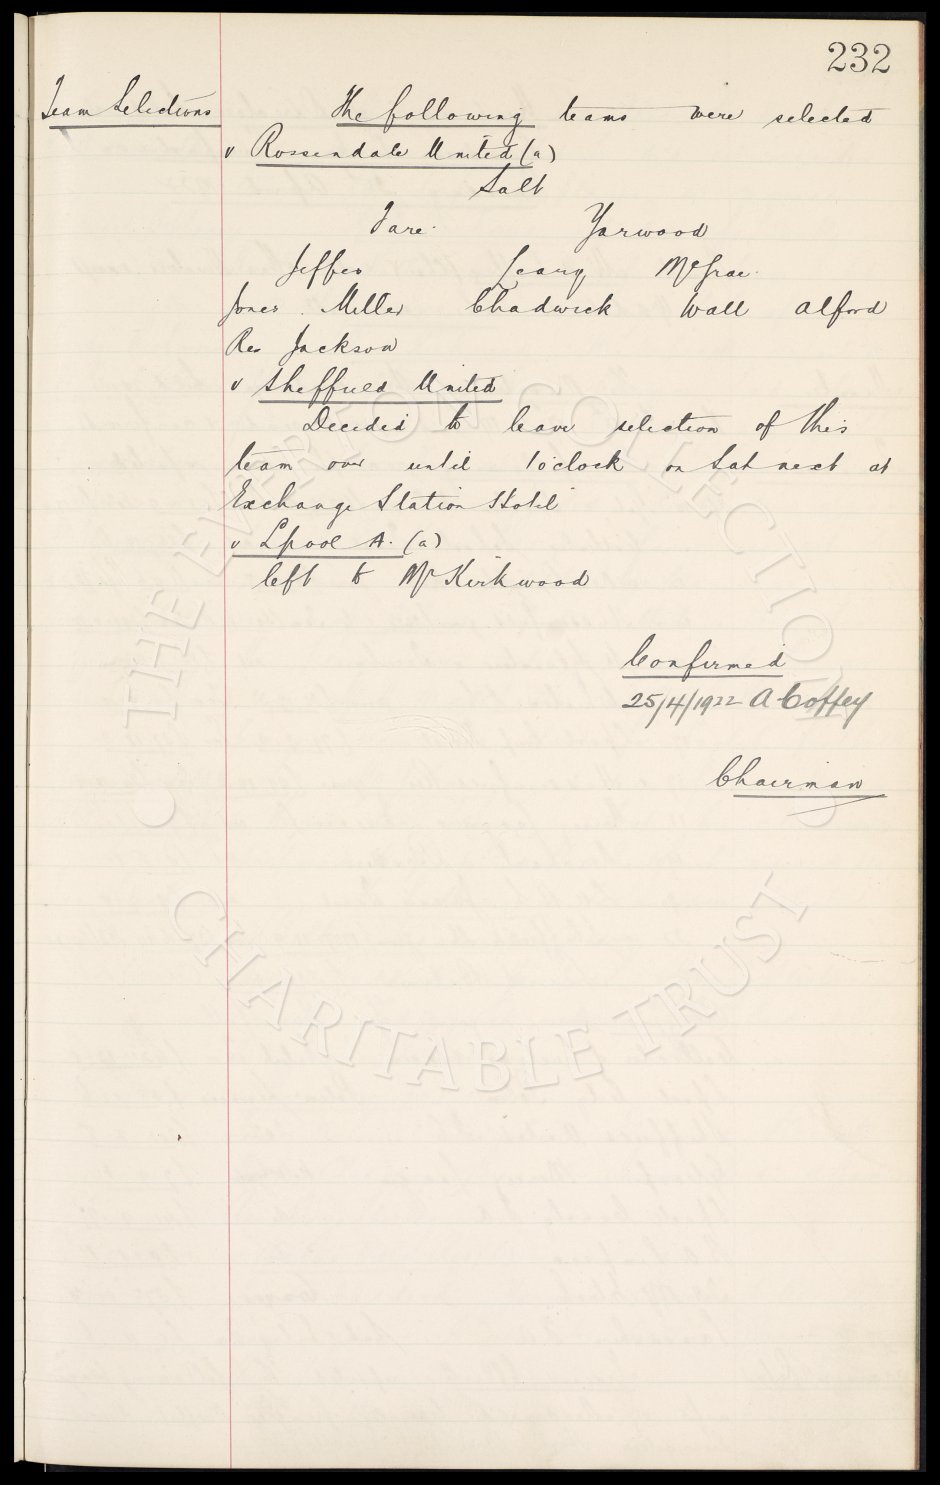 232
Team Selections
The following teams were selected
v Rossendale United (a)
Salt
Tare. Yarwood
Jeffes Leary McGrae.
Jones. Miller Chadwick Wall Alford
Res Jackson
v Sheffield United
Decided to leave selection of this
team over until 1 o'clock on Sat next at
Exchange Station Hotel
v Lpool A. (a)
left to Mr Kirkwood
Confirmed
25/4/1922 A Coffey
Chairman
THE EVERTON COLLECTION
CHARITABLE TRUST